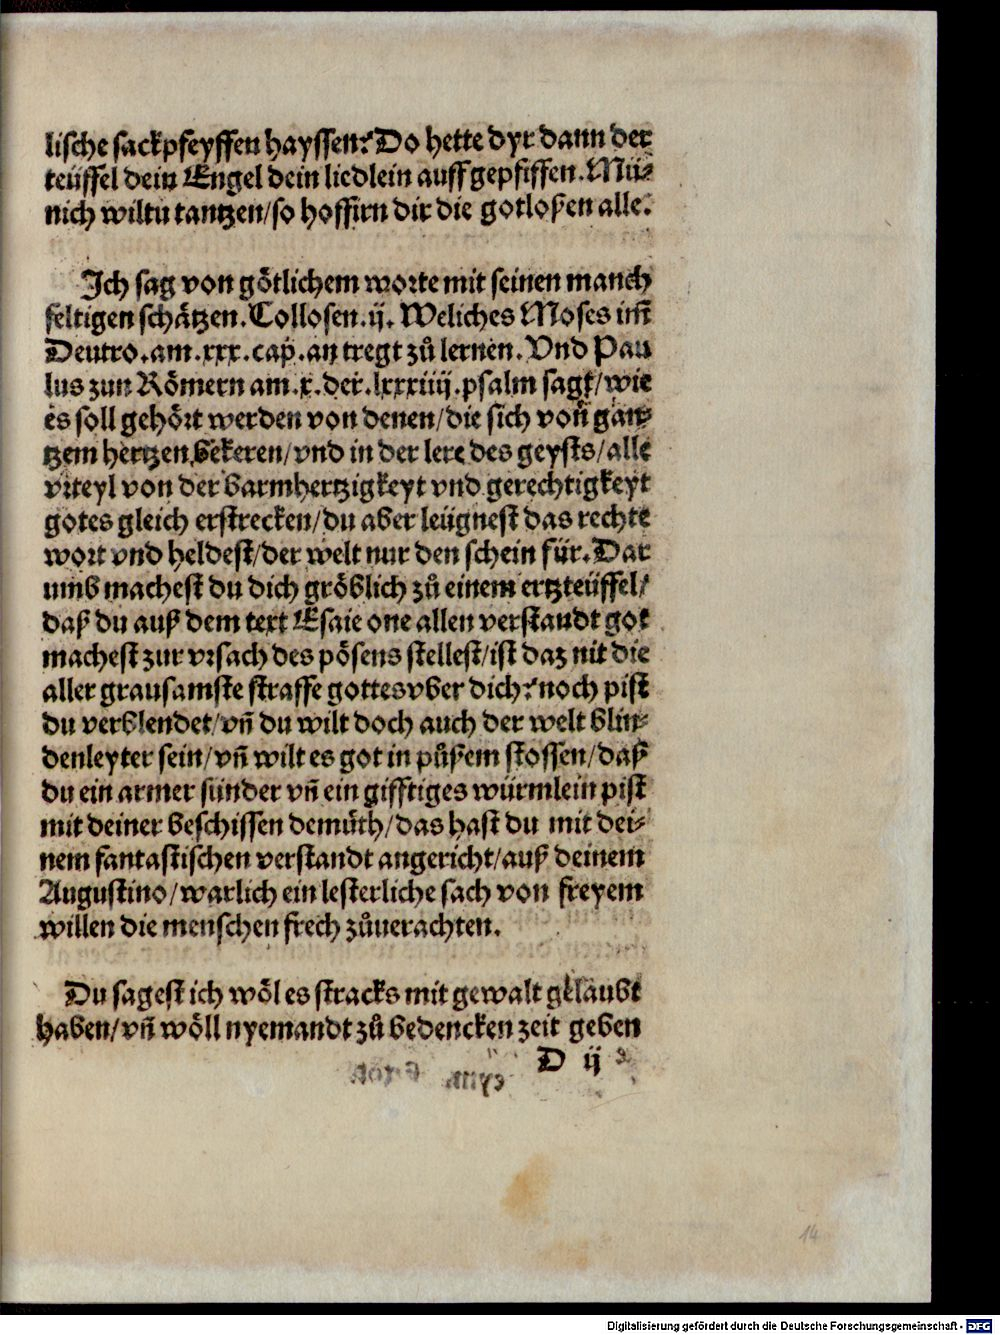 lische sackpfeyffen hayssen? Do hette dyr dann der
teüffel dein Engel dein liedlein auff gepfiffen. Mü⸗
nich wiltu tantzen/ so hoffirn dir die gotloßen alle.
Jch sag von götlichem worte mit seinen manch
feltigen schätzen. Collosen. ij. Weliches Moses im̃
Deutro. am. xxx. cap. an tregt zů lernen. Vnd Pau
lus zun Römern am. x. der. lxxxiiij. psalm sagt/ wie
es soll gehört werden von denen/ die sich von gan⸗
tzem hertzen bekeren/ vnd in der lere des geysts/ alle
vrteyl von der barmhertzigkeyt vnd gerechtigkeyt
gotes gleich erstrecken/ du aber leügnest das rechte
wort vnd heldest/ der welt nur den schein für. Dar
umb machest du dich gröblich zů einem ertzteüffel/
daß du auß dem text Esaie one allen verstandt got
machest zur vrsach des pösens stellest/ ist daz nit die
aller grausamste straffe gottes vber dich? noch pist
du verblendet/ vñ du wilt doch auch der welt blin⸗
denleyter sein/ vñ wilt es got in půßem stossen/ daß
du ein armer sünder vñ ein gifftiges würmlein pist
mit deiner beschissen demůth/ das hast du mit dei⸗
nem fantastischen verstandt angericht/ auß deinem
Augustino/ warlich ein lesterliche sach von freyem
willen die menschen frech zůuerachten.
Du sagest ich wöl es stracks mit gewalt gelaubt
haben/ vñ wöll nyemandt zů bedencken zeit geben
D ij
14
Digitalisierung gefördert durch die Deutsche Forschungsgemeinschaft - DFG